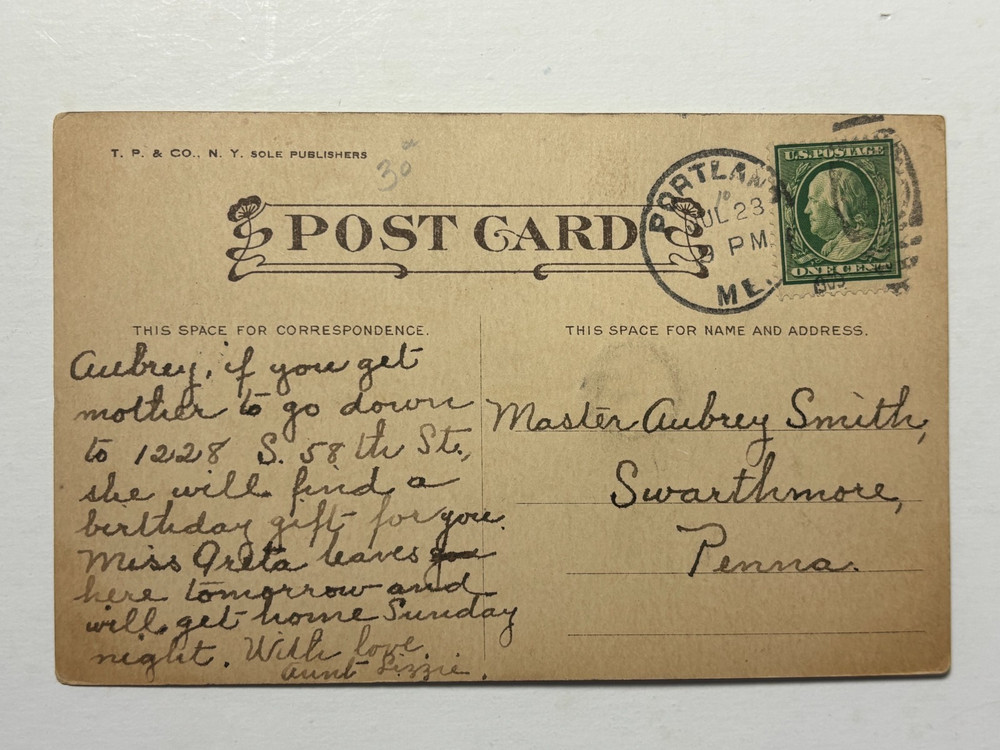 T. P. & CO., N. Y. SOLE PUBLISHERS
30
POST CARD
PORTLAND
JUL 23
PM
ME.
U.S. POSTAGE
ONE CENT
THIS SPACE FOR CORRESPONDENCE.
THIS SPACE FOR NAME AND ADDRESS.
Aubrey, if you get
mother to go down
to 1228 S. 58th St.,
she will find a
birthday gift for you.
Miss Greta leaves
here tomorrow and
will get home Sunday
night. With love
Aunt Lizzie.
Master Aubrey Smith,
Swarthmore,
Penna.